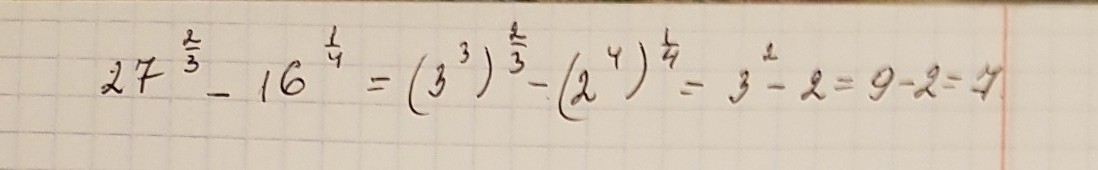 27^{2/3} - 16^{1/4} = (3^3)^{2/3} - (2^4)^{1/4} = 3^2 - 2 = 9 - 2 = 7